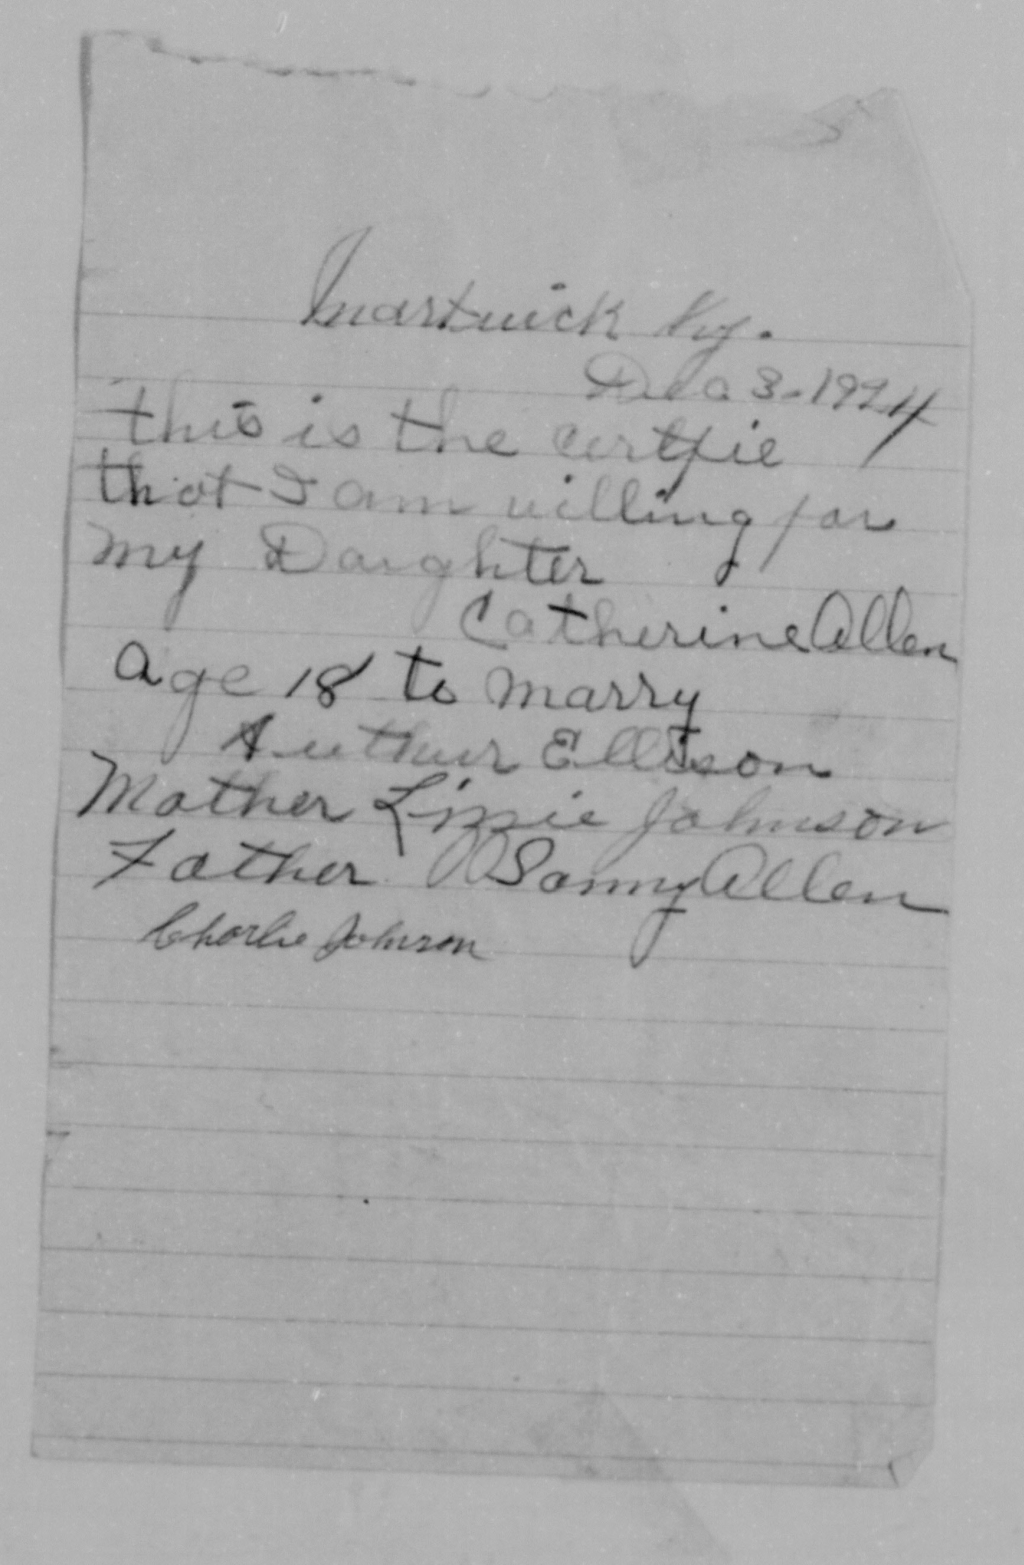 Martwick Ky.
Dec 3-1924
this is the certfie
that I am willing for
my Daughter
Catherine Allen
age 18 to marry
Authur Ellison
Mother Lizzie Johnson
Father Sonny Allen
Charlie Johnson